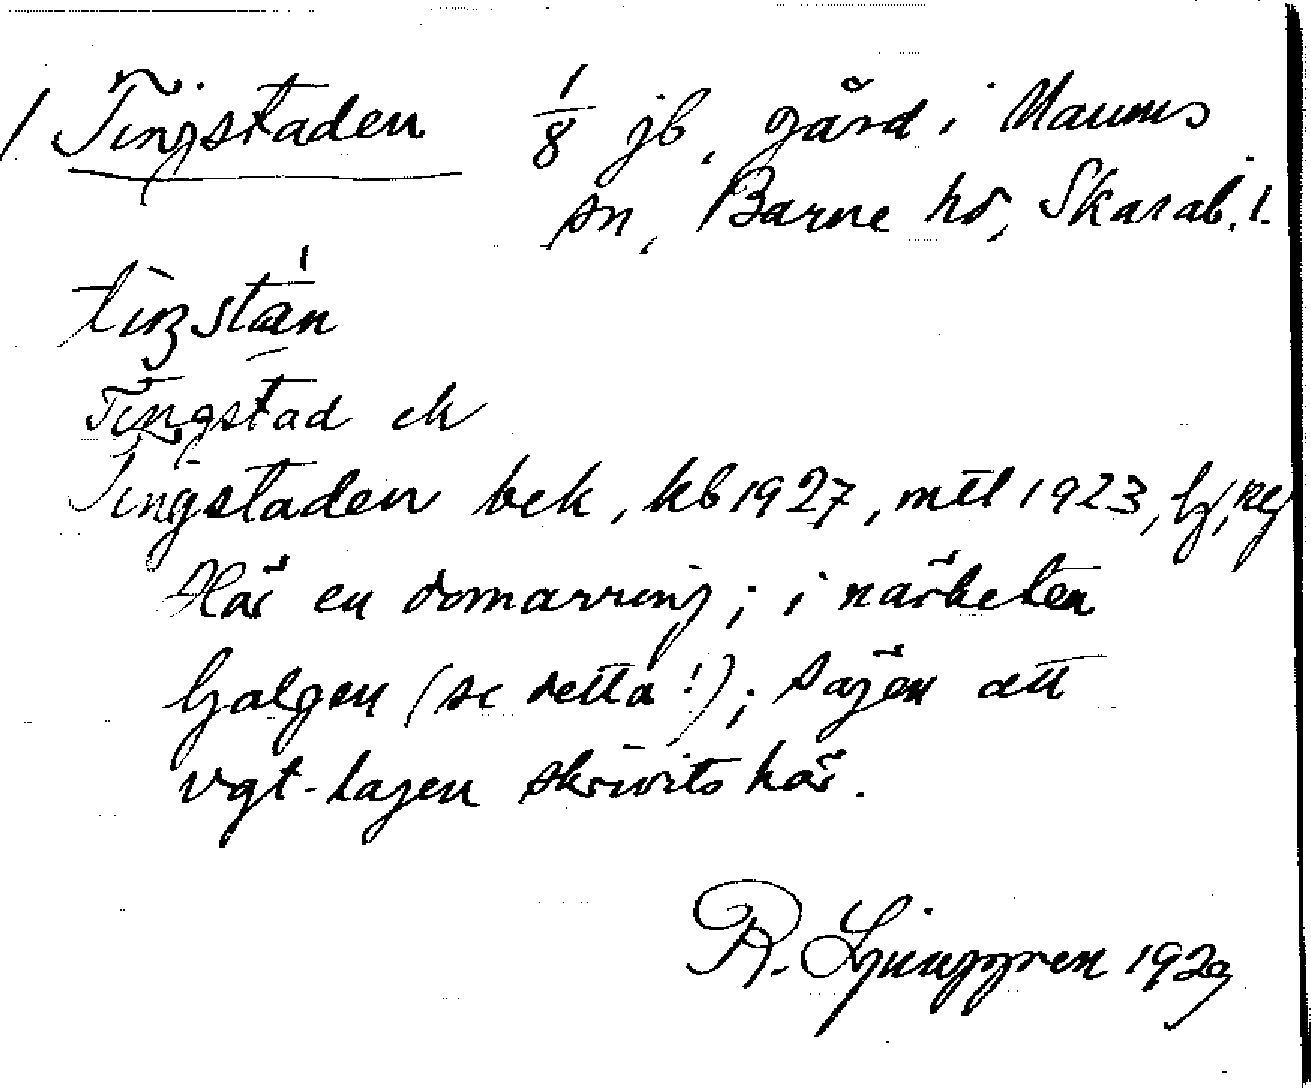 / Tingstaden 1/8 jb, gård i Naums
sn, Barne hd, Skarab. l.
tiŋstán
Tingstad ek
Tingstaden bek, kb 1927, mtl 1923, Gj, reg
Här en domarring; i närheten
Galgen (se detta!); sägen att
vgt-lagen skrivits här.
R. Ljunggren 1929